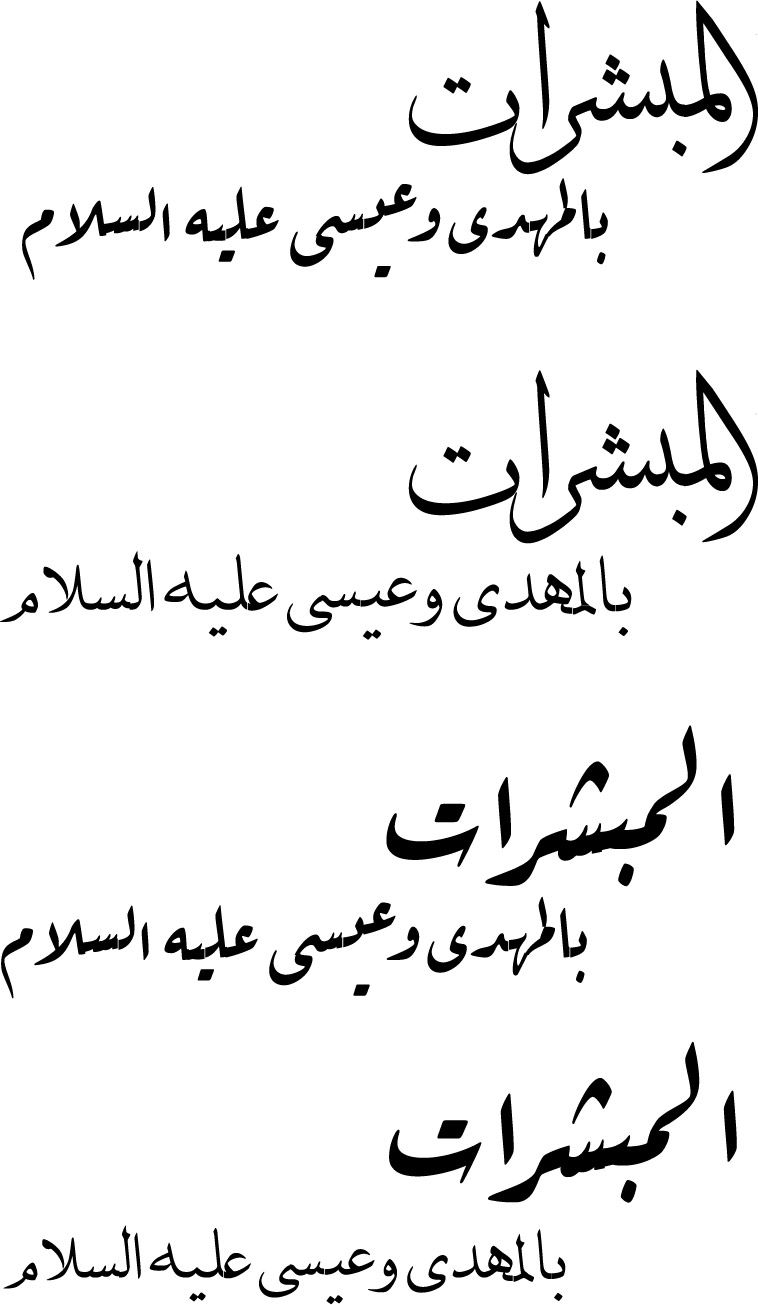 المبشرات
بالمهدى وعيسى عليه السلام
المبشرات
بالمهدى وعيسى عليه السلام
المبشرات
بالمهدى وعيسى عليه السلام
المبشرات
بالمهدى وعيسى عليه السلام